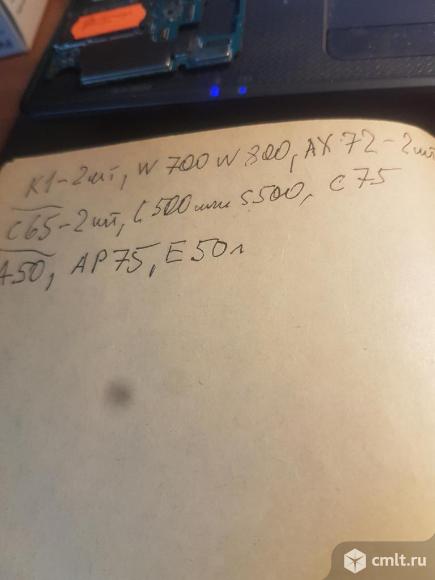 K1-2шт, W700 W800, AX72-2шт
C65-2шт, C500 или S500, C75
A50, AP75, E50л
cmlt.ru